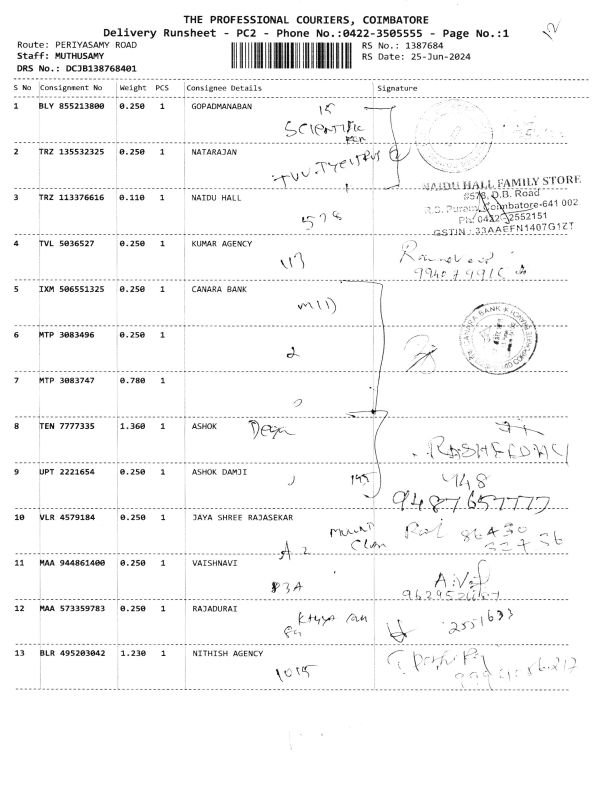 THE PROFESSIONAL COURIERS, COIMBATORE
Delivery Runsheet - PC2 - Phone No.:0422-3505555 - Page No.:1
Route: PERIYASAMY ROAD
RS No.: 1387684
Staff: MUTHUSAMY
RS Date: 25-Jun-2024
DRS No.: DCJB138768401
S No Consignment No Weight PCS Consignee Details Signature
1 BLY 855213800 0.250 1 GOPADMANABAN
15
SCIENTIFIC
2 TRZ 135532325 0.250 1 NATARAJAN
3 TRZ 113376616 0.110 1 NAIDU HALL
578
NAIDU HALL FAMILY STORE
#578, D.B. Road
R.S. Puram, Coimbatore-641 002
Ph: 0422-2552151
GSTIN : 33AAEFN1407G1ZT
4 TVL 5036527 0.250 1 KUMAR AGENCY
117
5 IXM 506551325 0.250 1 CANARA BANK
M(1)
CANARA BANK
6 MTP 3083496 0.250 1
2
7 MTP 3083747 0.780 1
8 TEN 7777335 1.360 1 ASHOK
9 UPT 2221654 0.250 1 ASHOK DAMJI
195
948
9487657777
10 VLR 4579184 0.250 1 JAYA SHREE RAJASEKAR
A 2
86430
32736
11 MAA 944861400 0.250 1 VAISHNAVI
83A
12 MAA 573359783 0.250 1 RAJADURAI
2551633
13 BLR 495203042 1.230 1 NITHISH AGENCY
1015